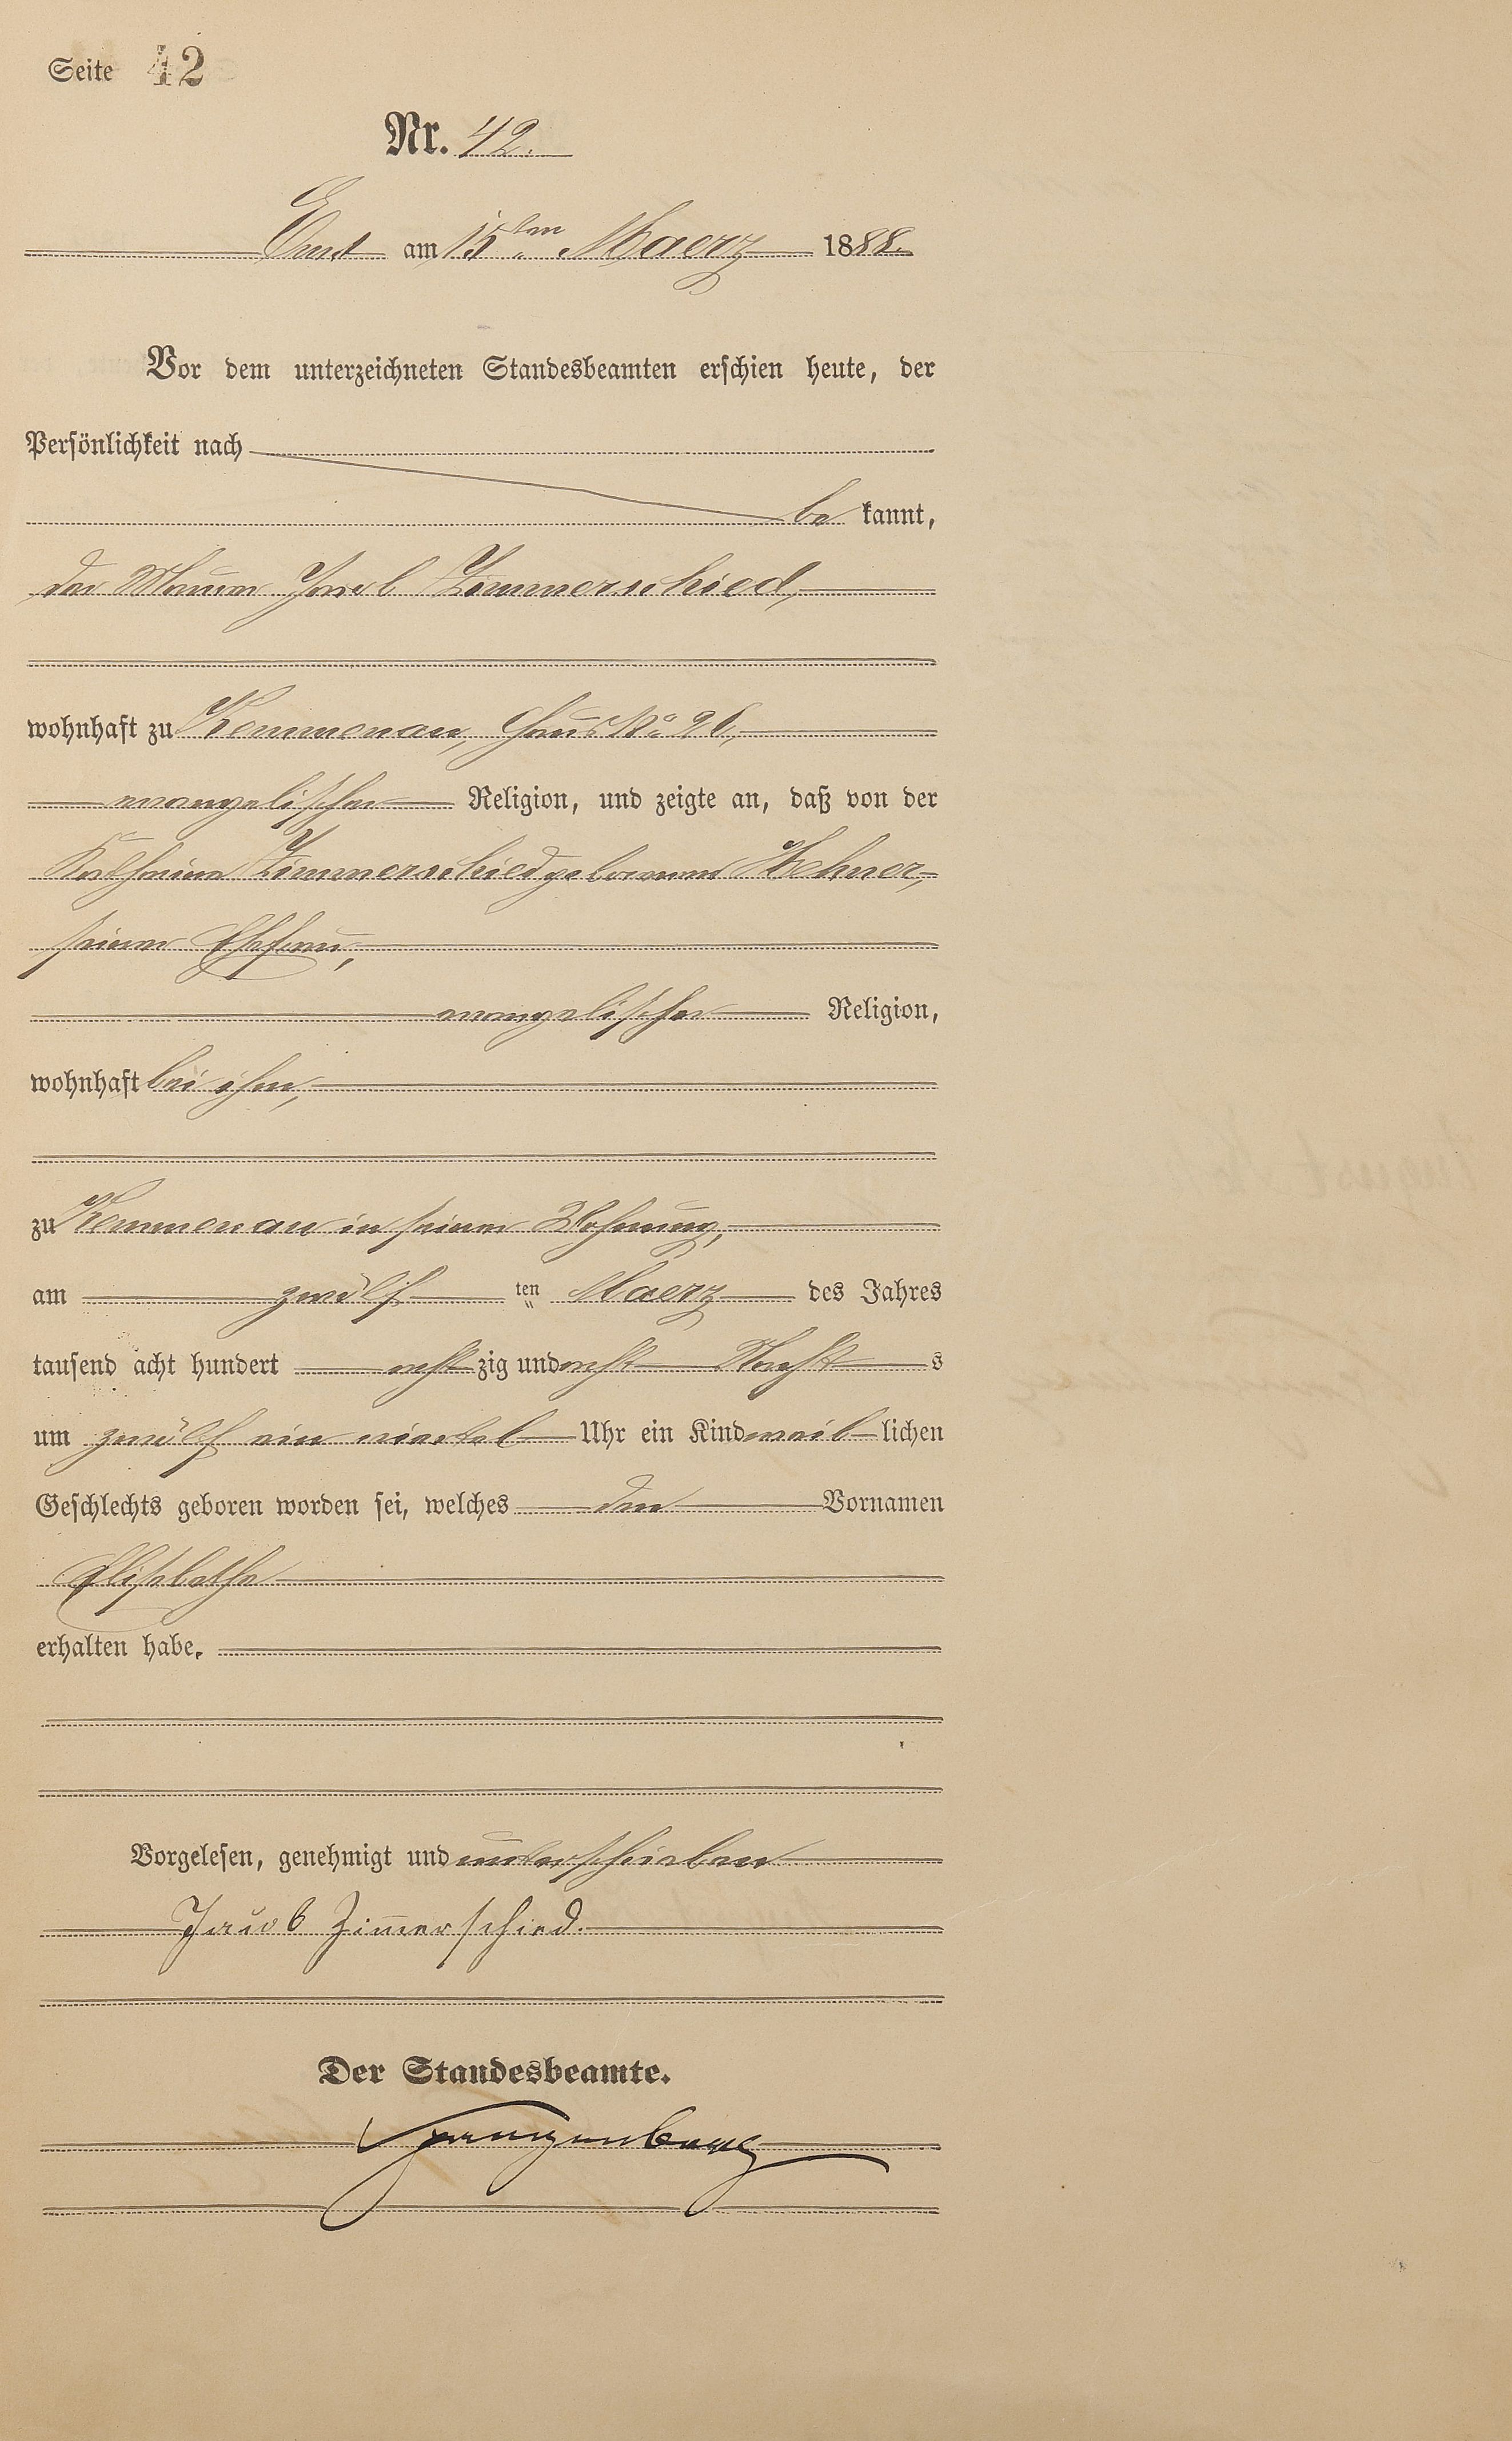 Seite 42
Nr. 42.
Ems am 15ten Maerz 1888.
Vor dem unterzeichneten Standesbeamten erschien heute, der
Persönlichkeit nach
be kannt,
der Maurer Jacob Zimmerschied,
wohnhaft zu Kemmenau, Haus No 26,
evangelischer Religion, und zeigte an, daß von der
Katharina Zimmerschied geborenen Hehner,
seiner Ehefrau,
evangelischer Religion,
wohnhaft bei ihm,
zu Kemmenau in seiner Wohnung,
am zwölf ten Maerz des Jahres
tausend acht hundert acht zig und acht Nachts
um zwölf ein viertel Uhr ein Kind weib lichen
Geschlechts geboren worden sei, welches den Vornamen
Elisabetha
erhalten habe.
Vorgelesen, genehmigt und unterschrieben
Jacob Zimmerschied.
Der Standesbeamte.
Spangenberg